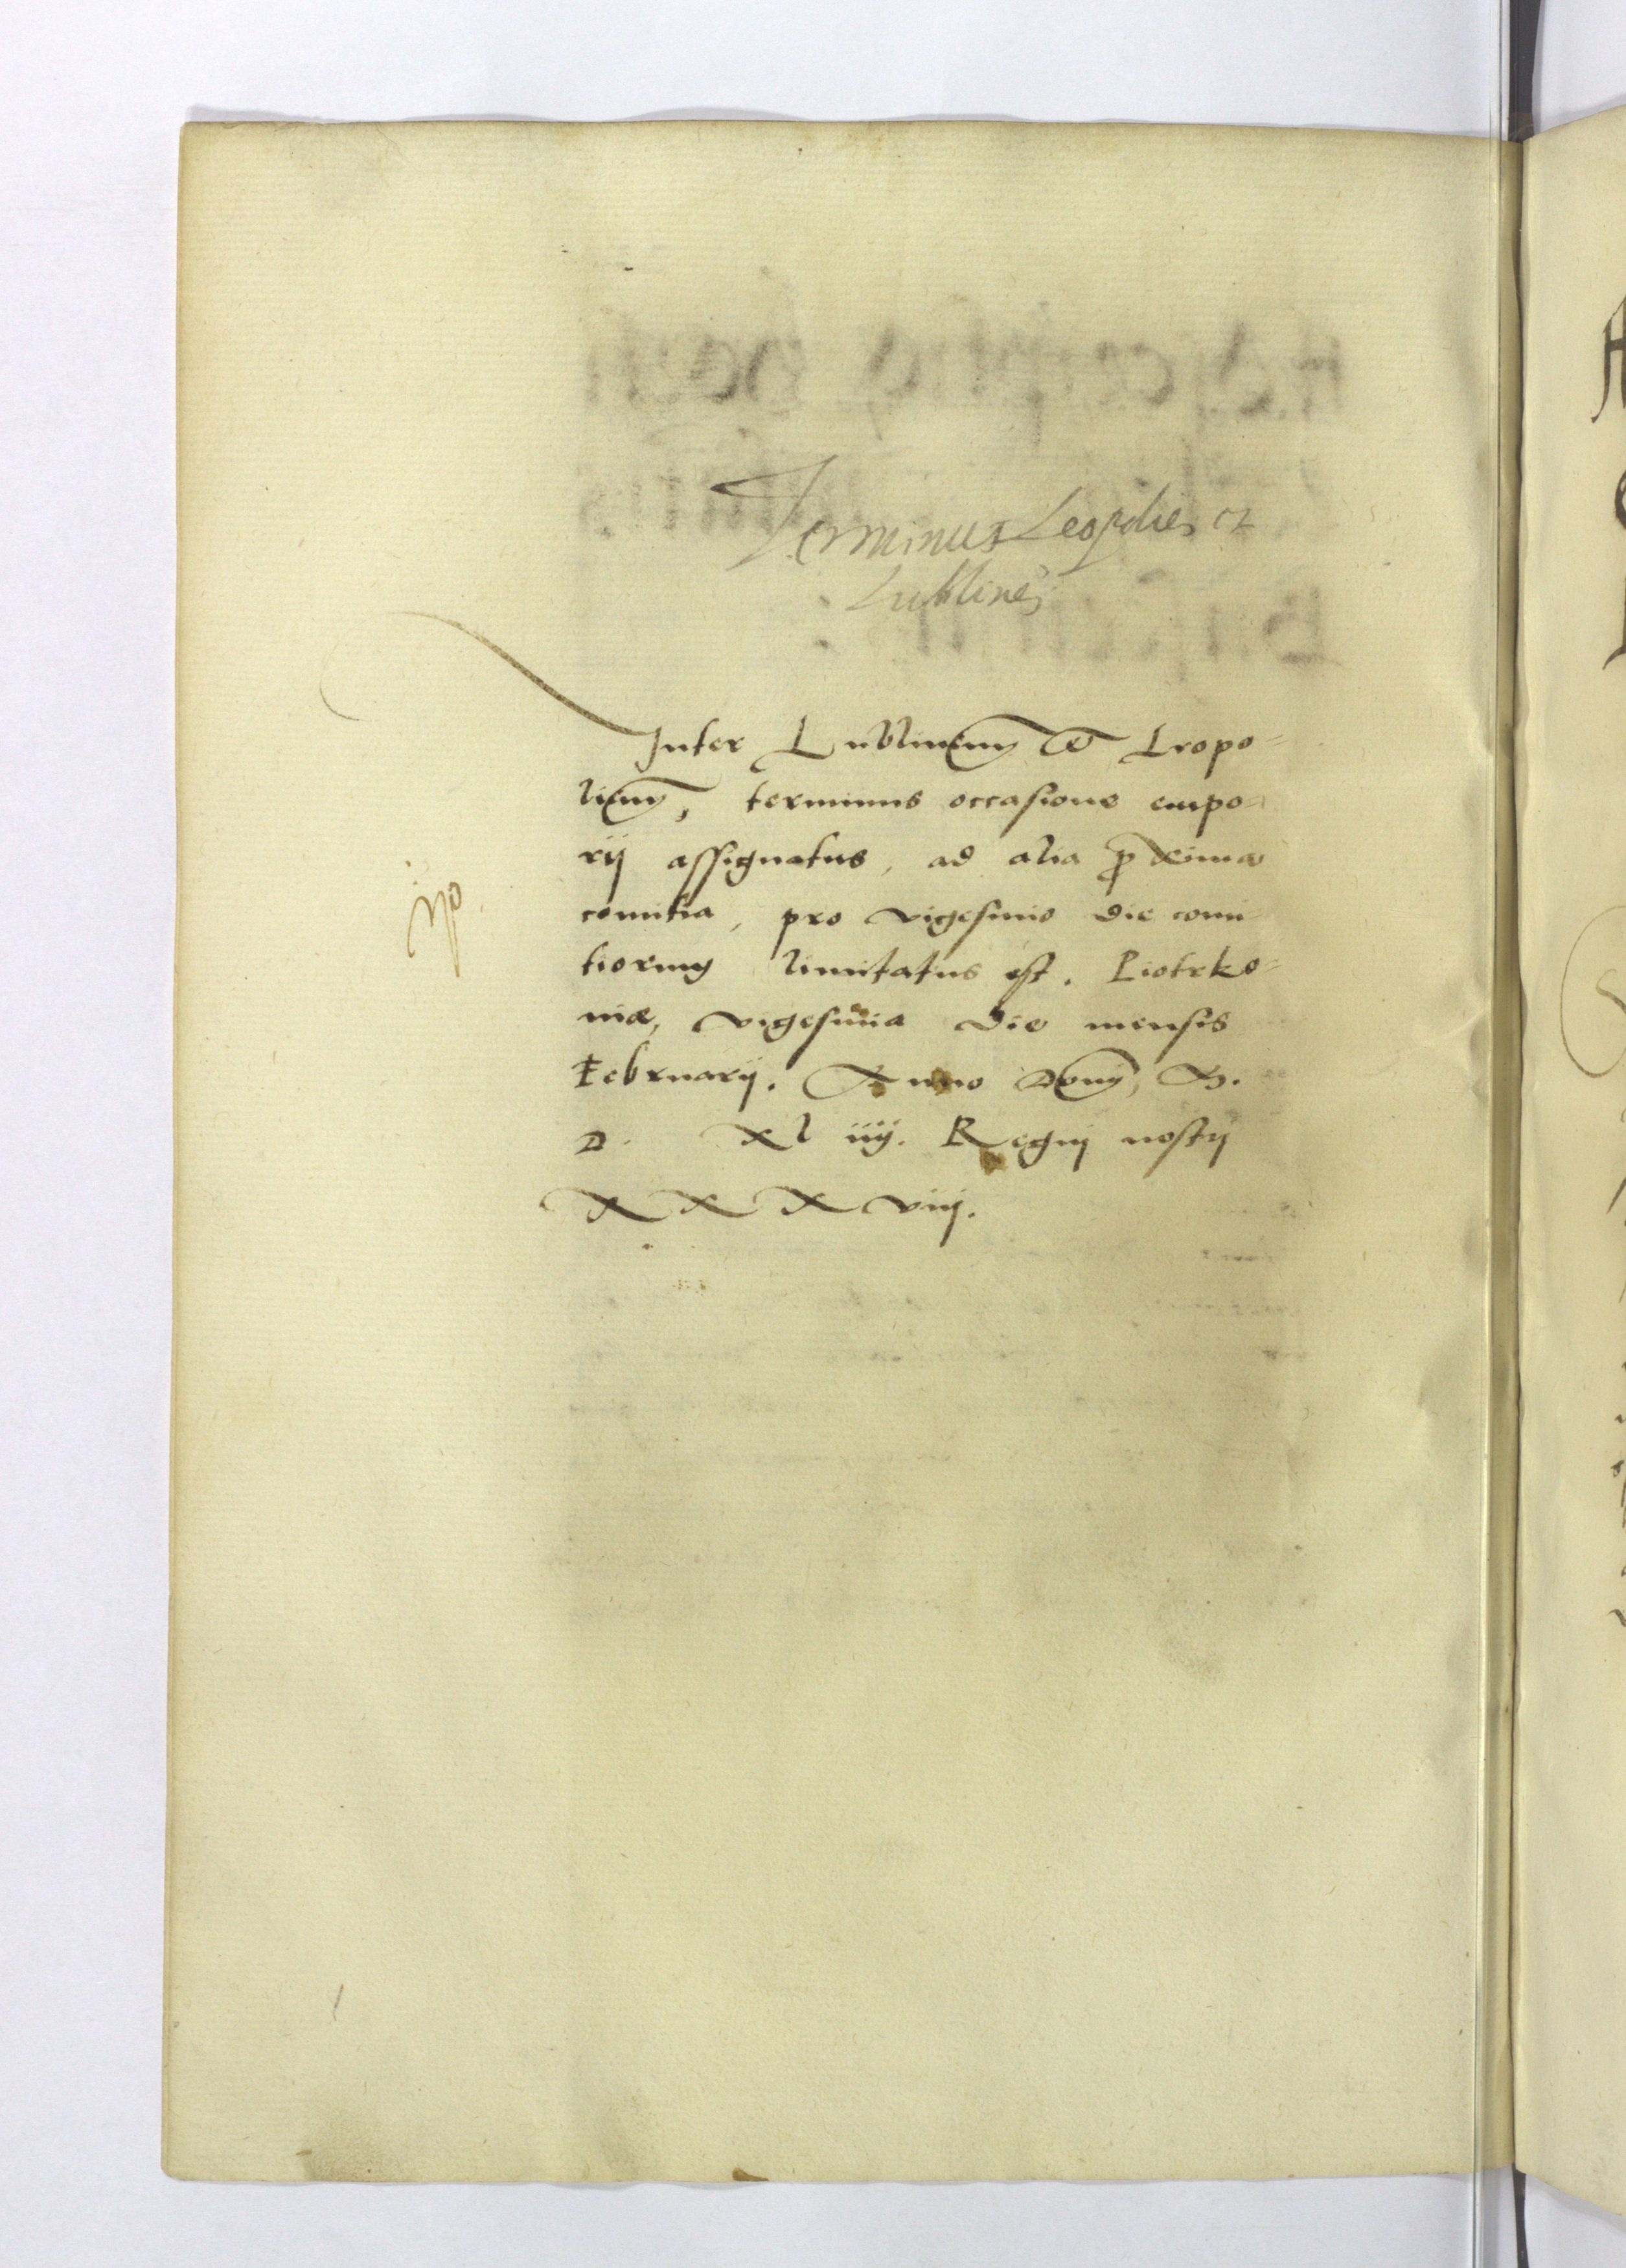 Terminus Leopolien et
Lublinen
Inter Lublineñ et Leopo=
lieñ, terminus occasione empo=
rij assignatus, ad alia proxima
comitia, pro vigesimo die comi=
tiorum limitatus est. Piotrko=
niæ, vigesima die mensis
Februarij. Anno Domi M.
D. Xl iiij. Regni nostri
XXXviij.